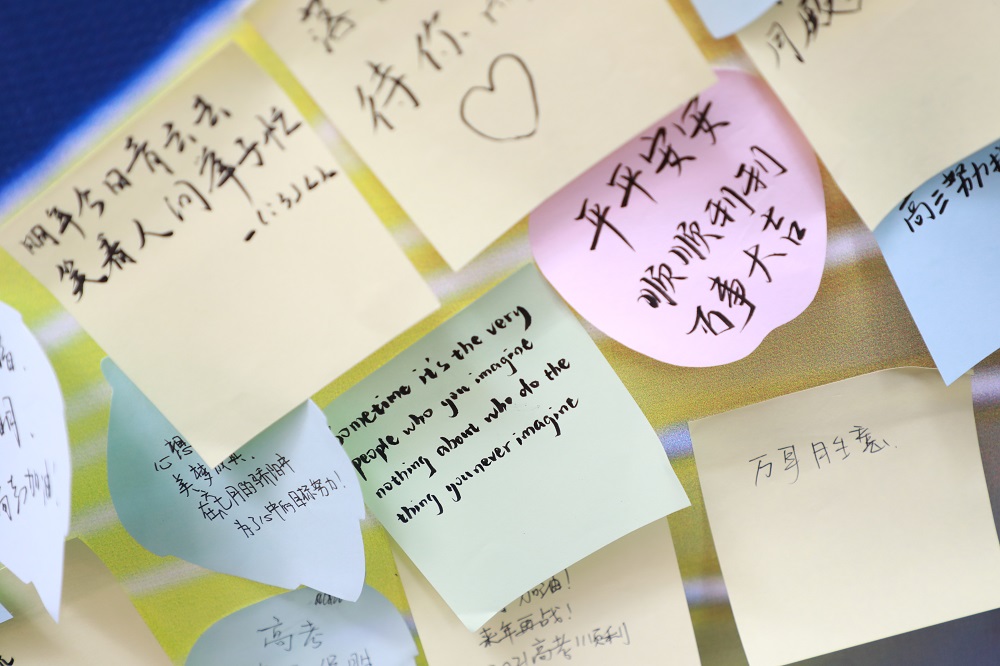 待你
明年今日青云去
笑看人间举子忙
平平安安
顺顺利利
万事大吉
高三努力
sometime it's the very
people who you imagine
nothing about who do the
thing you never imagine
心想
美梦成真.
在九月的骄阳中
为了心中的目标努力!
加油!
万事胜意.
高考
加油!
来年再战!
2021高考顺利